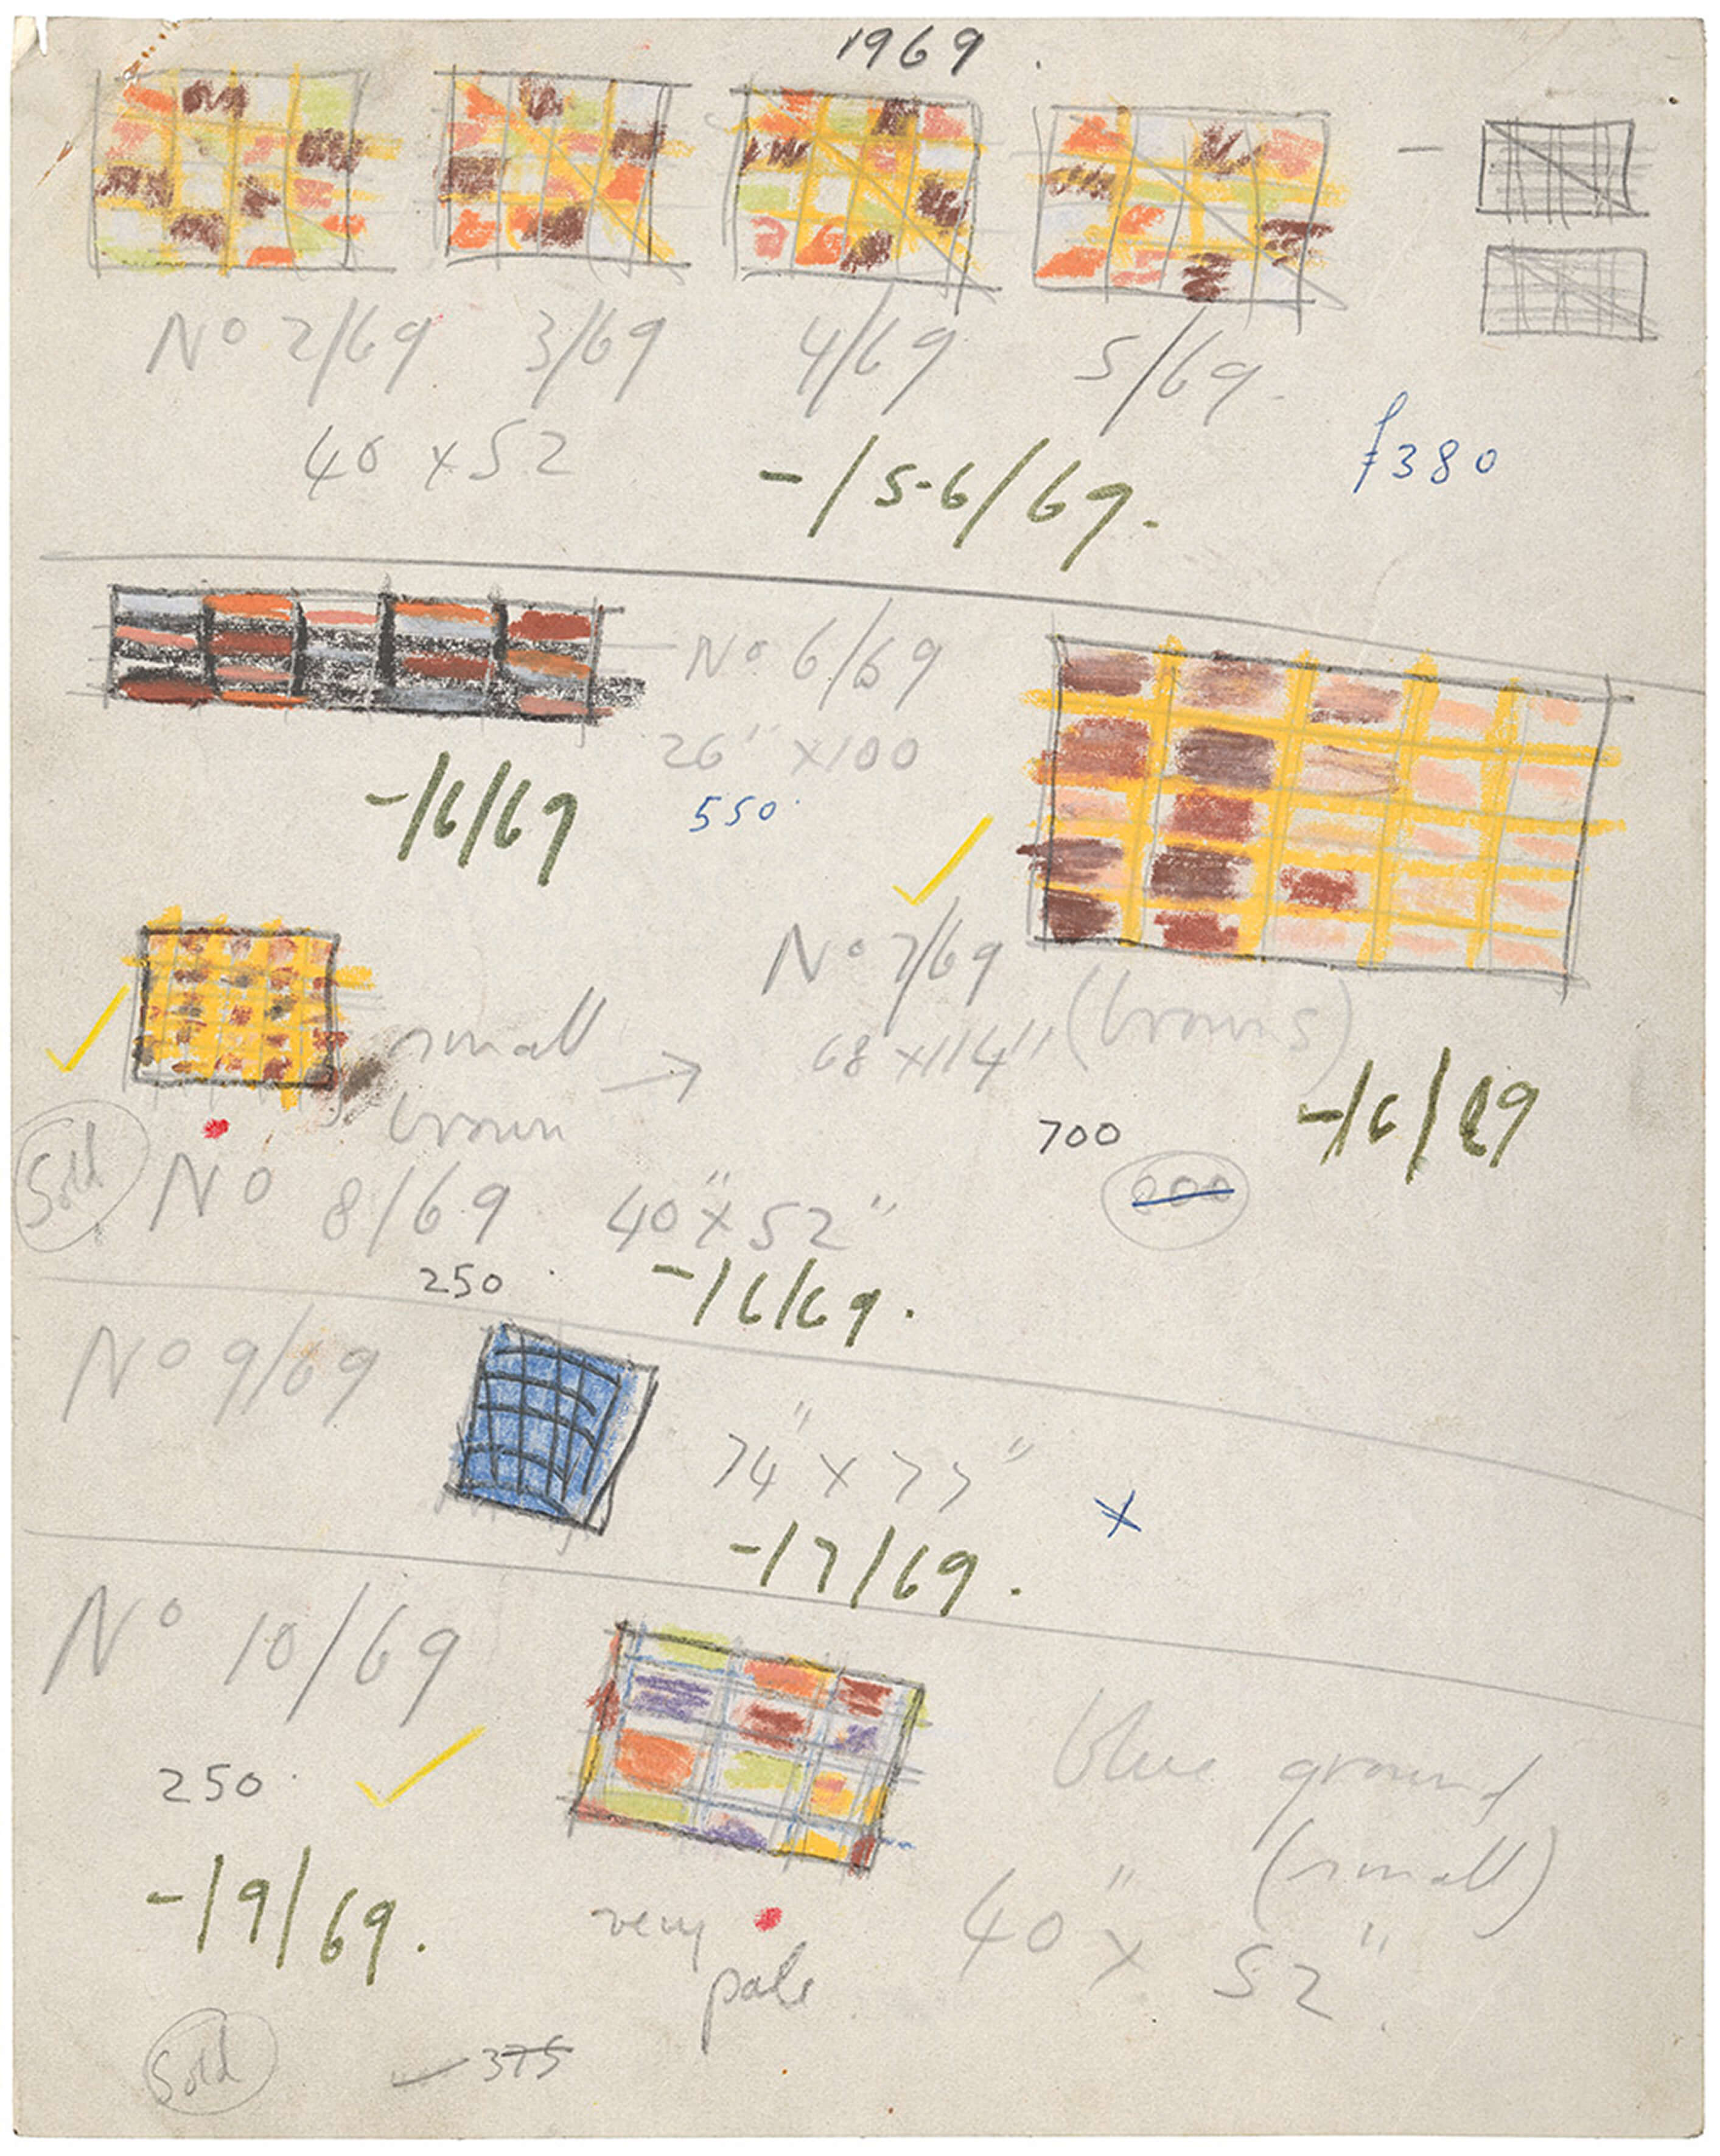 1969
No 2/69 3/69 4/69 5/69
40 x 52
-/5-6/69.
£380
No 6/69
26" x 100
550
-/6/69
No 7/69
68 x 114" (browns)
-/6/69
700
small →
brown
Sold
No 8/69 40" x 52"
250
-/6/69.
No 9/69
-/7/69.
No 10/69
250
blue ground
(small)
40" x 52"
-/9/69.
very
pale
Sold
375